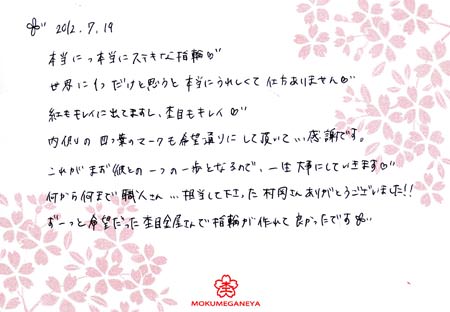 2012.7.19
本当にっ本当にステキな指輪♡
世界に1つだけと思うと本当にうれしくて仕方ありません♡
紅もキレイに出てますし、杢目もキレイ♡
内側りの四つ葉のマークも希望通りにして頂いて…感謝です。
これがまず彼との一つの一歩となるので、一生大事にしていきます♡
何から何まで職人さん…担当して下さった村岡さんありがとうございました!!
ずーっと希望だった杢目金屋さんで指輪が作れて良かったです
杢
MOKUMEGANEYA